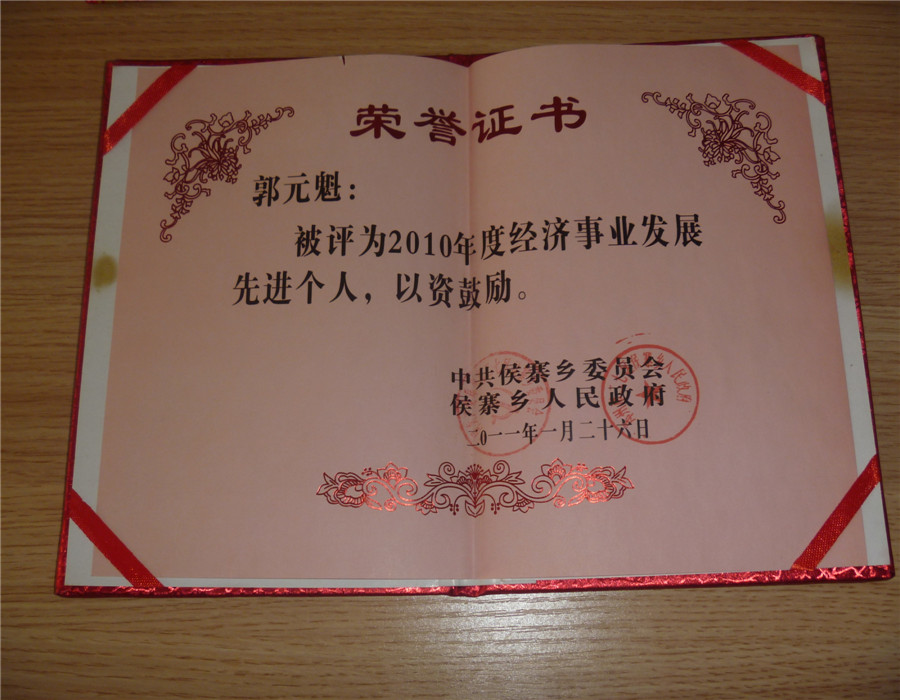 荣誉证书
郭元魁：
被评为2010年度经济事业发展
先进个人，以资鼓励。
中共侯寨乡委员会
侯寨乡人民政府
二〇一一年一月二十六日